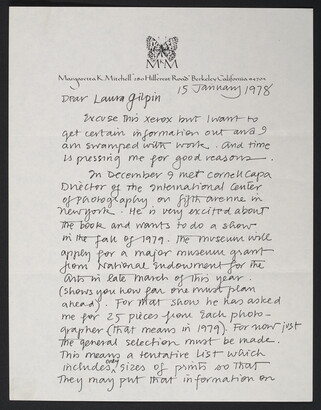 MM
Margaretta K. Mitchell 280 Hillcrest Road Berkeley California 94705
15 January 1978
Dear Laura Gilpin
Excuse this xerox but I want to
get certain information out and I
am swamped with work. And time
is pressing me for good reasons.
In December I met Cornell Capa
Director of the International Center
of Photography on fifth avenue in
New York. He is very excited about
the book and wants to do a show
in the fall of 1979. The museum will
apply for a major museum grant
from National Endowment for the
Arts in late march of this year.
(shows you how far one must plan
ahead). For that show he has asked
me for 25 pieces from each photo-
grapher (that means in 1979). For now just
the general selection must be made.
This means a tentative list which
includes only sizes of prints so that
They may put that information on